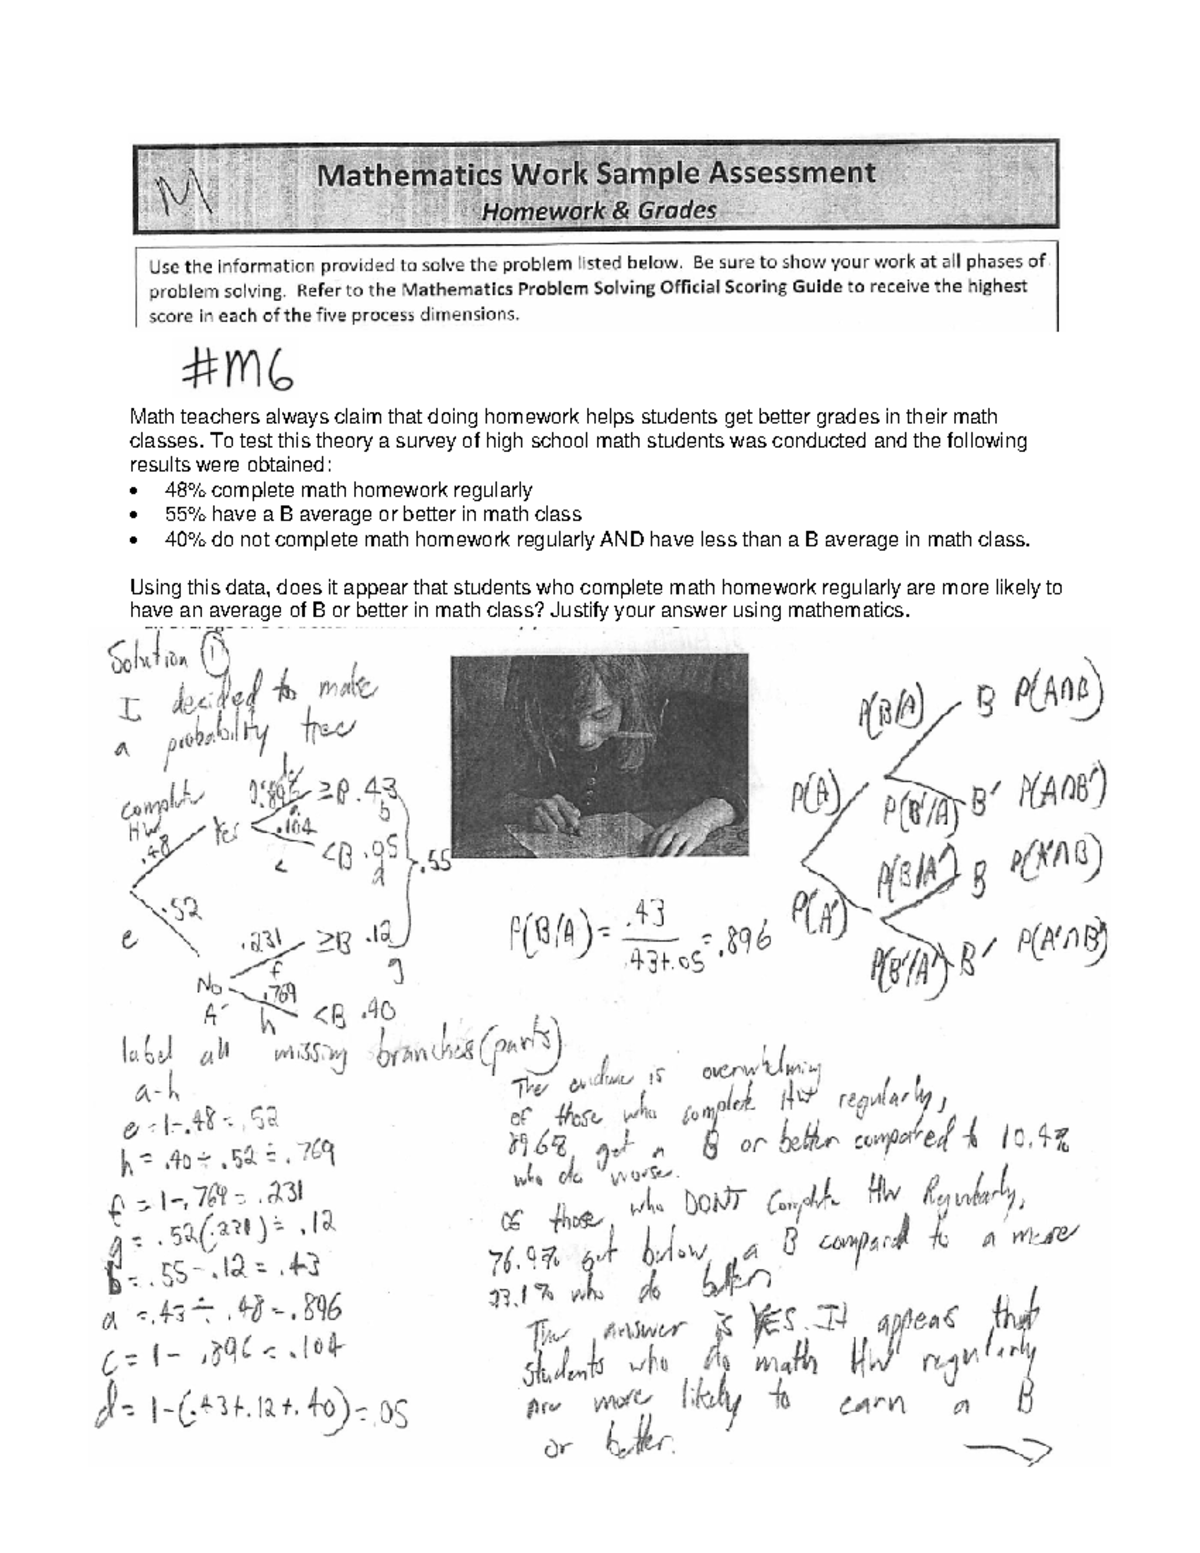 M
Mathematics Work Sample Assessment
Homework & Grades
Use the information provided to solve the problem listed below. Be sure to show your work at all phases of
problem solving. Refer to the Mathematics Problem Solving Official Scoring Guide to receive the highest
score in each of the five process dimensions.
#M6
Math teachers always claim that doing homework helps students get better grades in their math
classes. To test this theory a survey of high school math students was conducted and the following
results were obtained:
• 48% complete math homework regularly
• 55% have a B average or better in math class
• 40% do not complete math homework regularly AND have less than a B average in math class.
Using this data, does it appear that students who complete math homework regularly are more likely to
have an average of B or better in math class? Justify your answer using mathematics.
Solution ①
I decided to make
a probability tree
complete
HW
.48
Yes
≥B .43
b
.104
c
<B .05
d
.55
.52
e
.231
f
≥B .12
g
No
A'
.769
h
<B .40
P(B/A) = .43
.43+.05
= .896
P(A)
P(B/A)
B P(A∩B)
P(B'/A)
B' P(A∩B')
P(A')
P(B/A')
B P(A'∩B)
P(B'/A')
B' P(A'∩B')
label all missing branches (parts)
a-h
e = 1-.48 = .52
h = .40 ÷ .52 = .769
f = 1-.769 = .231
g = .52(.231) = .12
b = .55 - .12 = .43
a = .43 ÷ .48 = .896
c = 1 - .896 = .104
d = 1-(.43+.12+.40) = .05
The evidence is overwhelming
of those who complete HW regularly,
89.6% get a B or better compared to 10.4%
who do worse.
Of those, who DONT Complete HW Regularly,
76.9% get below a B compared to a mere
23.1% who do better
The answer is YES. It appears that
students who do math HW regularly
are more likely to earn a B
or better.